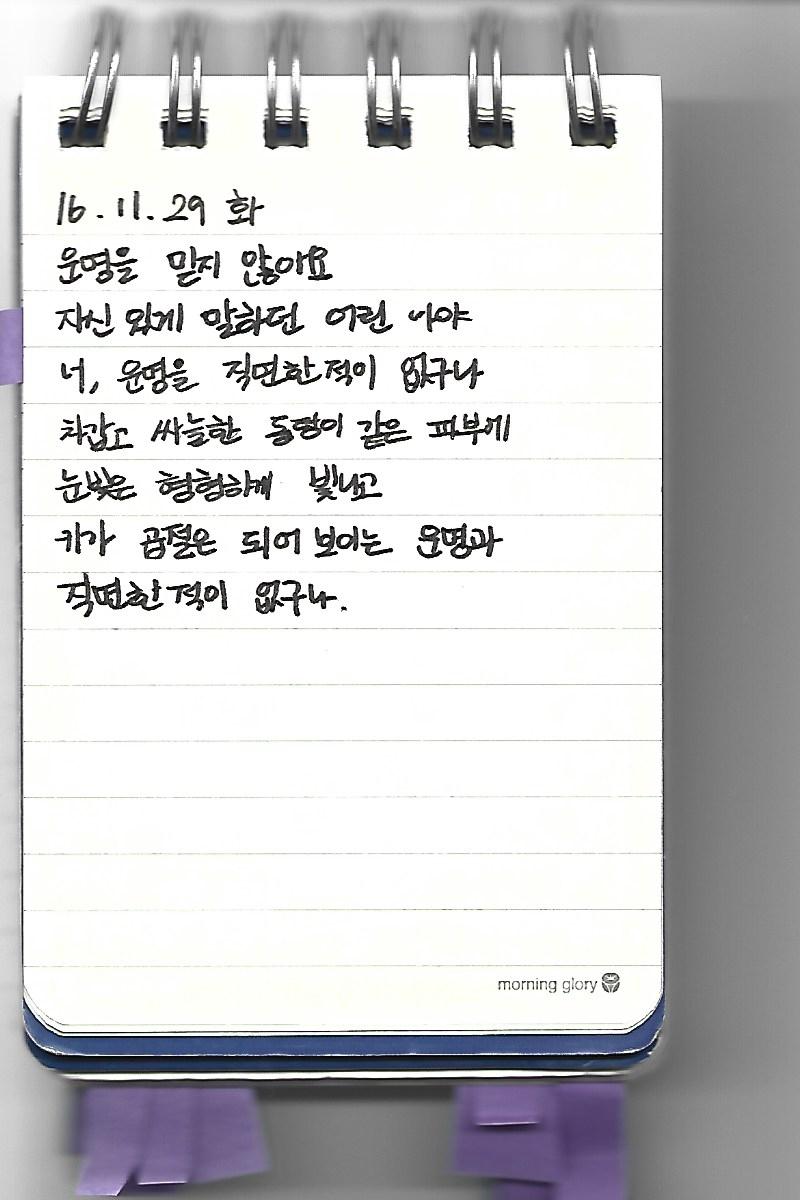 16.11.29 화
운명을 믿지 않아요
자신 있게 말하던 어린 나야
너, 운명을 직면한 적이 없구나
차갑고 싸늘한 동탕이 같은 피부에
눈빛은 형형하게 빛나고
키가 곱절은 되어 보이는 운명과
직면한 적이 없구나.
morning glory